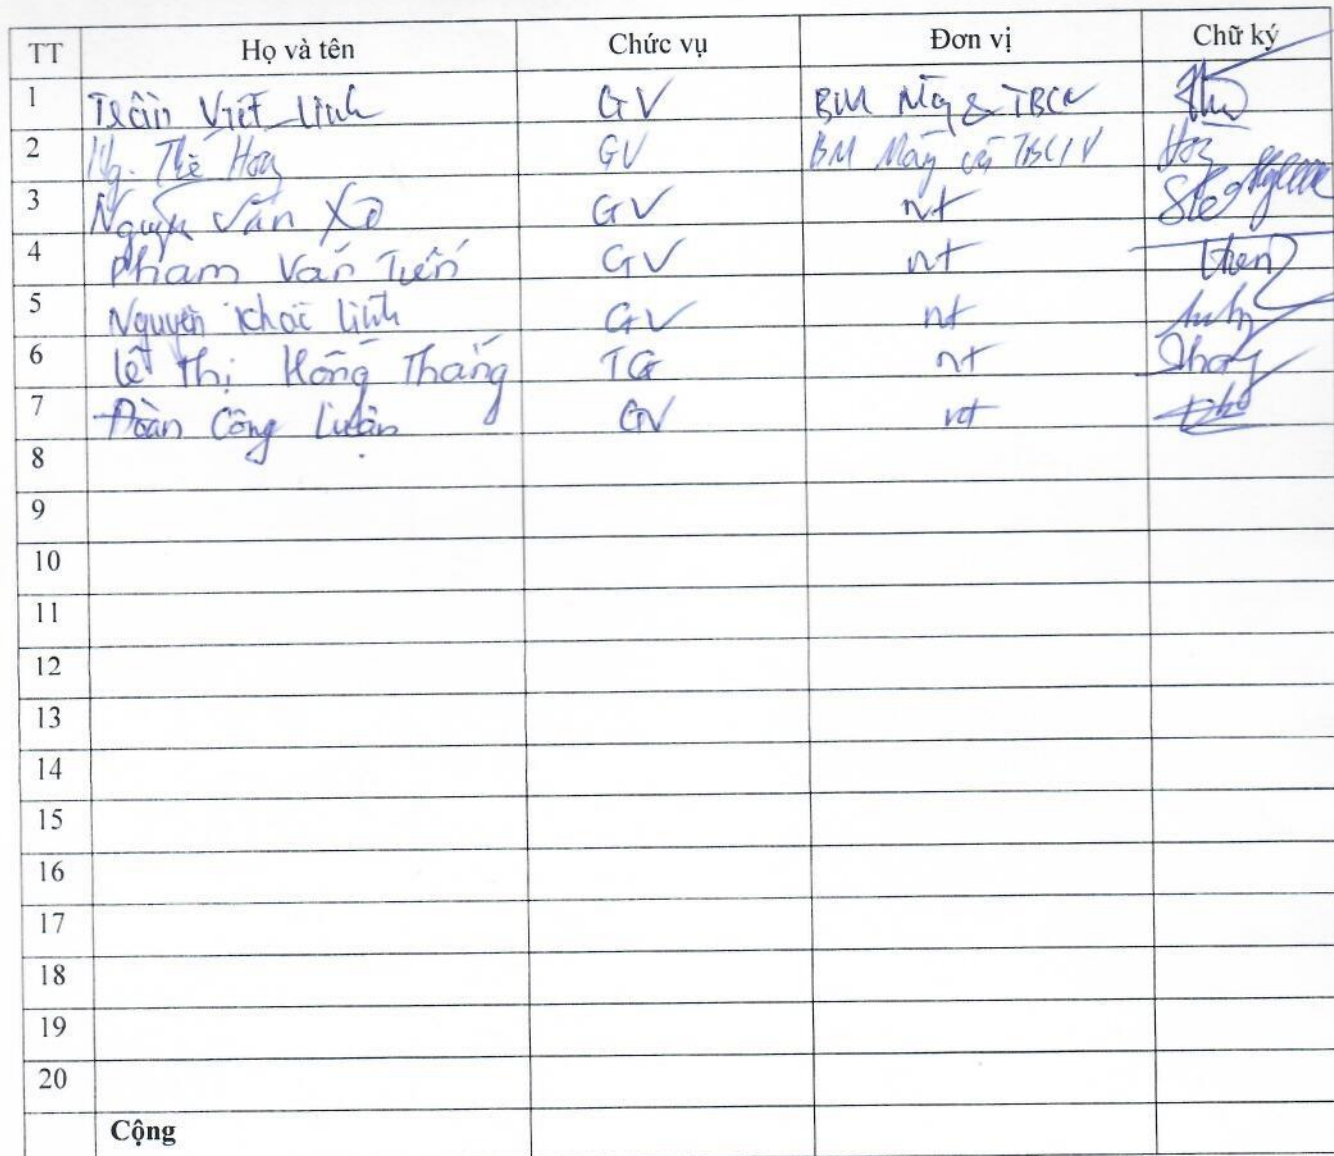 TT Họ và tên Chức vụ Đơn vị Chữ ký
1 Trần Viết Linh GV BM Máy & TBCN
2 Ng. Thế Hoàng GV BM Máy và TBCN
3 Nguyễn Văn Xô GV nt
4 Phạm Văn Tiến GV nt
5 Nguyễn Khắc Lĩnh GV nt
6 Lê Thị Hồng Thắng TG nt
7 Đoàn Công Luận GV nt
8
9
10
11
12
13
14
15
16
17
18
19
20
Cộng